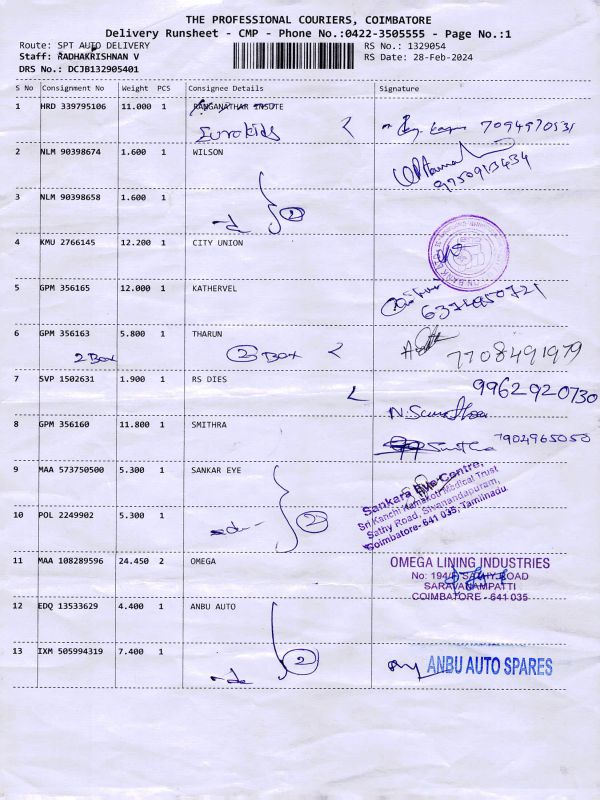 THE PROFESSIONAL COURIERS, COIMBATORE
Delivery Runsheet - CMP - Phone No.:0422-3505555 - Page No.:1
Route: SPT AUTO DELIVERY RS No.: 1329054
Staff: RADHAKRISHNAN V RS Date: 28-Feb-2024
DRS No.: DCJB132905401
S No Consignment No Weight PCS Consignee Details Signature
1 HRD 339795106 11.000 1 RANGANATHAR INSUTE
Eurokids 7094970531
2 NLM 90398674 1.600 1 WILSON
9750913434
3 NLM 90398658 1.600 1
-do 2
4 KMU 2766145 12.200 1 CITY UNION
5 GPM 356165 12.000 1 KATHERVEL
6374950721
6 GPM 356163 5.800 1 THARUN
2 Box 2 Box 7708491979
7 SVP 1502631 1.900 1 RS DIES 9962920730
8 GPM 356160 11.800 1 SMITHRA
Smitha 7904965050
9 MAA 573750500 5.300 1 SANKAR EYE
Sankara Eye Centre,
Sri Kanchi Kamakoti Medical Trust
Sathy Road, Sivanandapuram,
Coimbatore- 641 035, Tamilnadu
10 POL 2249902 5.300 1
-do- 2
11 MAA 108289596 24.450 2 OMEGA
OMEGA LINING INDUSTRIES
No: 194/ SATHY ROAD
SARAVANAMPATTI
COIMBATORE - 641 035
12 EDQ 13533629 4.400 1 ANBU AUTO
13 IXM 505994319 7.400 1
-do 2
ANBU AUTO SPARES